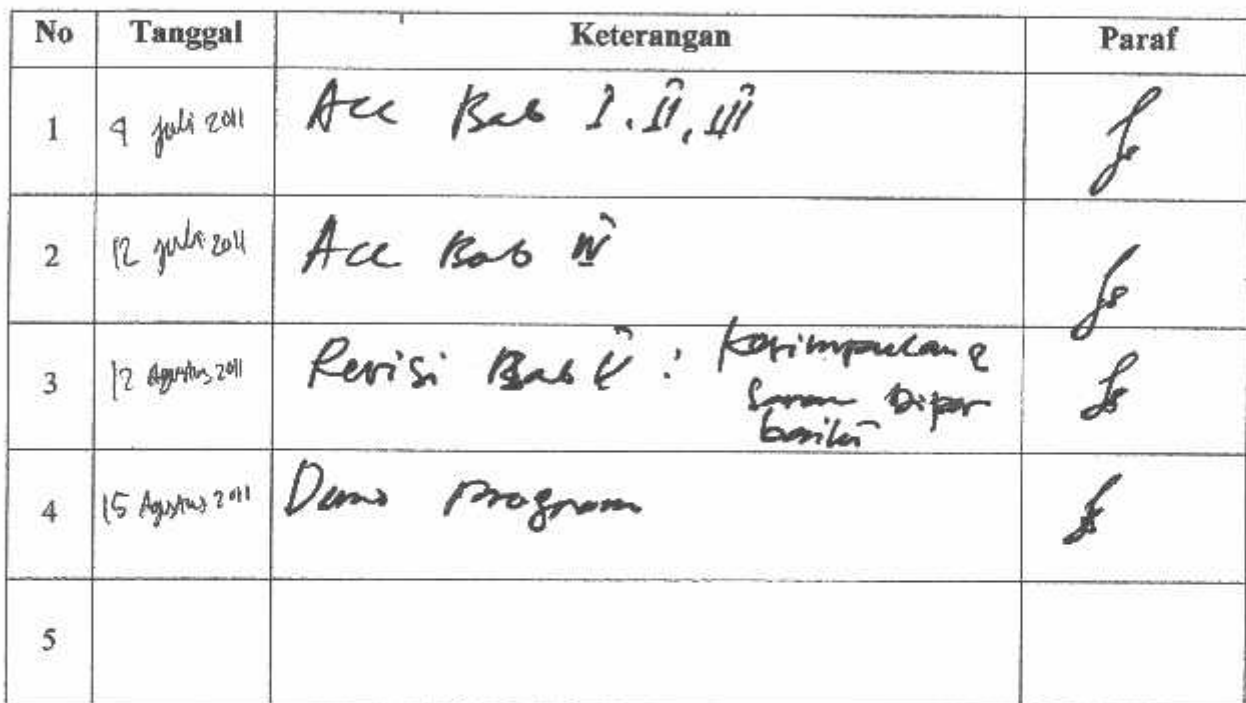 No Tanggal Keterangan Paraf
1 9 juli 2011 Acc Bab I, II, III
2 12 juli 2011 Acc Bab IV
3 12 Agustus 2011 Revisi Bab V : Kesimpulan &
Saran Diper
baiki
4 15 Agustus 2011 Demo Program
5